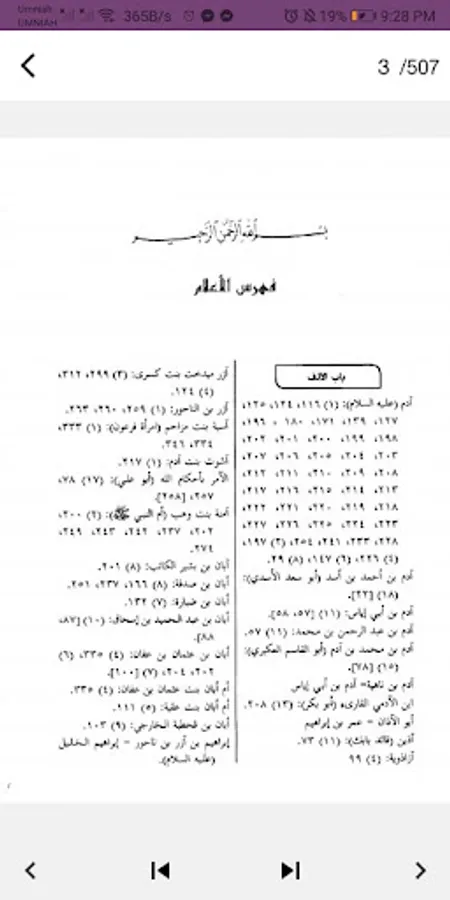 Umniah
UMNIAH
365B/s
19%
9:28 PM
3 /507
بسم الله الرحمن الرحيم
فهرس الأعلام
باب الألف
آدم (عليه السلام): (١) ١١٦، ١٢٤، ١٢٥،
١٢٧، ١٣٩، ١٧١، ١٨٠، ١٩٦،
١٩٨، ١٩٩، ٢٠٠، ٢٠١، ٢٠٢،
٢٠٣، ٢٠٤، ٢٠٥، ٢٠٦، ٢٠٧،
٢٠٨، ٢٠٩، ٢١٠، ٢١١، ٢١٢،
٢١٣، ٢١٤، ٢١٥، ٢١٦، ٢١٧،
٢١٨، ٢١٩، ٢٢٠، ٢٢١، ٢٢٢،
٢٢٣، ٢٢٤، ٢٢٥، ٢٢٦، ٢٢٧،
٢٢٨، ٢٣٣، ٢٤١، ٢٥٤، (٢) ١٩٧،
(٤) ٢٢٦، (٦) ١٤٧، (٨) ٢٩.
آدم بن أحمد بن أسد (أبو سعد الأسدي):
(١٨) [٢٢].
آدم بن أبي إياس: (١١) [٥٧، ٥٨].
آدم بن عبد الرحمن بن محمد: (١١) ٥٧.
آدم بن محمد بن آدم (أبو القاسم العكبري):
(١٥) [٧٨].
آدم بن ناهية= آدم بن أبي إياس
ابن الآدمي القارىء (أبو بكر): (١٣) ٢٠٨.
أبو الآذان = عمر بن إبراهيم
آذين (قائد بابك): (١١) ٧٣.
آزاذوية: (٤) ٩٩
آزر ميدخت بنت كسرى: (٣) ٢٩٩، ٣١٢،
(٤) ١٢٤.
آزر بن الناحور: (١) ٢٥٩، ٢٦٠، ٢٦٣.
آسية بنت مزاحم (امرأة فرعون): (١) ٣٣٣،
٣٣٤، ٣٤٦.
آشوت بنت آدم: (١) ٢١٧.
الآمر بأحكام الله (أبو علي): (١٧) ٧٨،
٢٥٧، [٢٥٨].
آمنة بنت وهب (أم النبي ﷺ): (٢) ٢٠٠،
٢٠٢، ٢٣٧، ٢٤٢، ٢٤٣، ٢٤٩،
٢٧٤.
أبان بن بشير الكاتب: (٨) ٢٠١.
أبان بن صدقة: (٨) ١٦٦، ٢٣٧، ٢٥١.
أبان بن ضبارة: (٧) ١٣٢.
أبان بن عبد الحميد بن إسحاق: (١٠) [٨٧،
٨٨].
أبان بن عثمان بن عفان: (٤) ٣٣٥، (٦)
٢٠٢، ٢٠٤، (٧) [١٠٠].
أم أبان بنت عثمان بن عفان: (٤) ٣٣٥.
أم أبان بنت عقبة: (٥) ١١١.
أبان بن قحطبة الخارجي: (٩) ١٠٣.
إبراهيم بن آزر بن ناحور = إبراهيم الخليل
(عليه السلام).